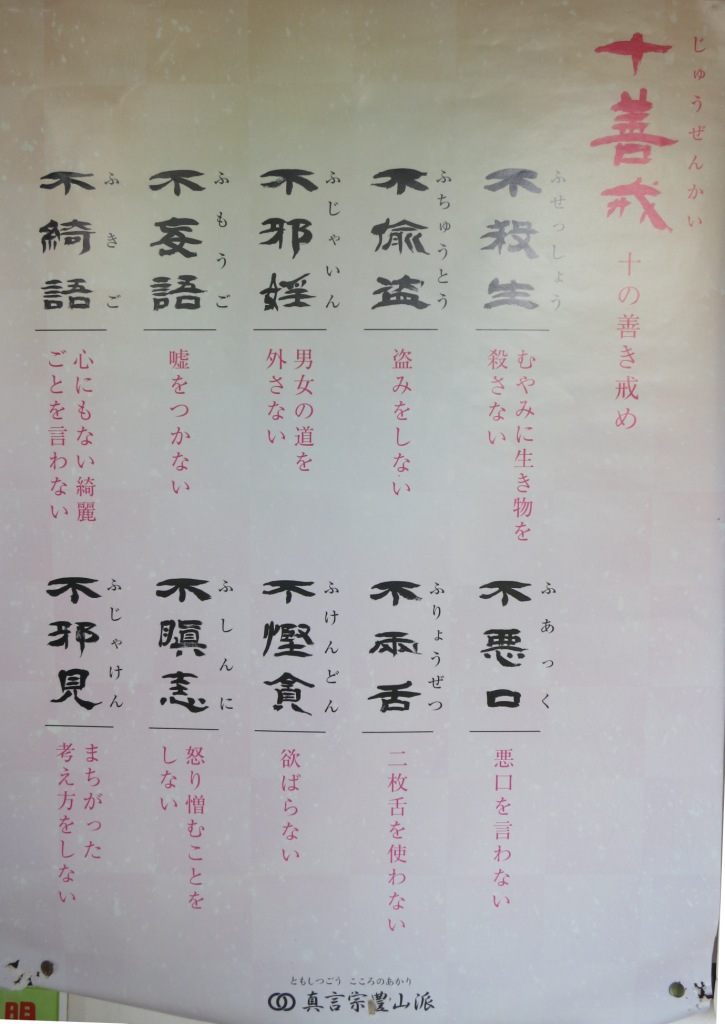 じゅうぜんかい
十善戒
十の善き戒め
ふせっしょう
不殺生
むやみに生き物を
殺さない
ふちゅうとう
不偸盗
盗みをしない
ふじゃいん
不邪婬
男女の道を
外さない
ふもうご
不妄語
嘘をつかない
ふきご
不綺語
心にもない綺麗
ごとを言わない
ふあっく
不悪口
悪口を言わない
ふりょうぜつ
不両舌
二枚舌を使わない
ふけんどん
不慳貪
欲ばらない
ふしんに
不瞋恚
怒り憎むことを
しない
ふじゃけん
不邪見
まちがった
考え方をしない
ともしつごう こころのあかり
真言宗豊山派